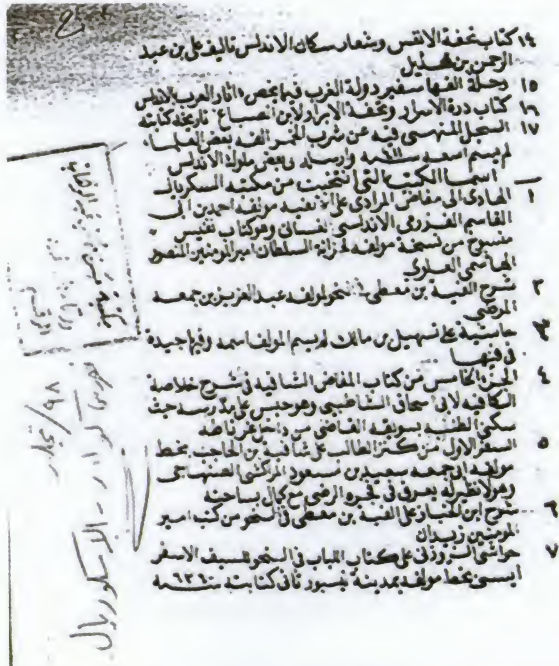 ١٤ كتاب تحفة الانفس وشعار سكان الاندلس تاليف على بن عبد
الرحمن بن هذيل
١٥ رحلة الفها سفير دولة الغرب فيما يخص اثار العرب بالاندلس
١٦ كتاب درة الاسرار وتحفة الابرار لابن الصباغ تاريخ كتابته
١٧ السجل المنهى فيه عن شرب الخمر الفه بعض العلماء
لم يسم اسمه وارسله لبعض ملوك الاندلس
اسما الكتب التى انتخبت من مكتبه السكريال
١ الهادى الى مقاصد المرادى على الفيه مولفه احمد بن ابى
القاسم الاندلسى الغسانى وهو كتاب نفيس
منسوخ من نسخة مولفه لخزانة السلطان امير المومنين المنصور
الهاشمى العلوى
٢ شرح الفية بن معطى فى النحو لمولفه عبد العزيز بن جمعه
٣ حاشية على تسهيل بن مالك لم يسم المولف اسمه وفيها جيدة
فى فنها
٤ الجزء الخامس من كتاب المقاصد الشافيه فى شرح خلاصة
الكافيه لابى اسحاق الشاطبى وهو حبس على مدرسه حيث
سكنى الطلبه القاضى من داخل غرناطه
٥ السفر الاول من كنز المطالب على شافية بن الحاجب بخط
مولفه ابى جمعه سعيد بن مسعود المراكشى الصنهاجى
وهو لا نظير له يعرف فى بحره الرضى مع كمال مباحثه
٦ شرح ابن الخباز على الفية بن معطى فى النحو من كتب امير
المومنين زيدان
٧ حواشى على كتاب اللباب فى النحو لسيف الاسفر
ايسى بخط مولفه بمدينة نيسبور ثانى كتابت سنه ٦٣٦
٩٨ /
الاسكوريال